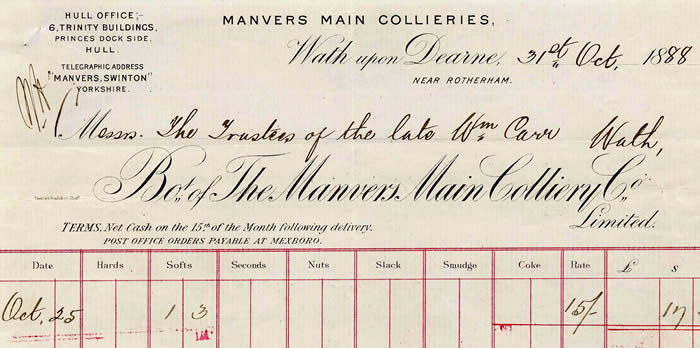 HULL OFFICE;-
6, TRINITY BUILDINGS,
PRINCES DOCK SIDE,
HULL.
TELEGRAPHIC ADDRESS
"MANVERS, SWINTON"
YORKSHIRE.
MANVERS MAIN COLLIERIES,
Wath upon Dearne, 31st Oct, 1888
NEAR ROTHERHAM.
Messrs. The Trustees of the late Wm Carr Wath,
Bot. of The Manvers Main Colliery Co.
Limited.
TERMS. Net Cash on the 15th of the Month following delivery.
POST OFFICE ORDERS PAYABLE AT MEXBORO.
Date Hards Softs Seconds Nuts Slack Smudge Coke Rate £ s
Oct, 25 1 3 15/- 17